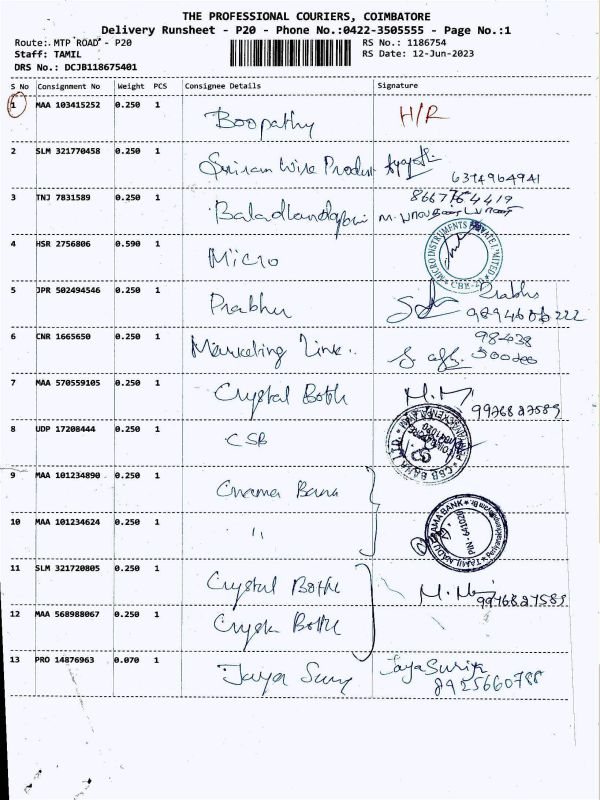 THE PROFESSIONAL COURIERS, COIMBATORE
Delivery Runsheet - P20 - Phone No.:0422-3505555 - Page No.:1
Route: MTP ROAD - P20 RS No.: 1186754
Staff: TAMIL RS Date: 12-Jun-2023
DRS No.: DCJB118675401
S No Consignment No Weight PCS Consignee Details Signature
1 MAA 103415252 0.250 1 Boopathy H/R
2 SLM 321770458 0.250 1 Sriram Wire Product 6374964941
3 TNJ 7831589 0.250 1 8667764419
4 HSR 2756806 0.590 1 Micro MICRO INSTRUMENTS PRIVATE LIMITED * CBE-29 *
5 JPR 502494546 0.250 1 Prabhu Prabhu
6 CNR 1665650 0.250 1 Marketing Link. 98438
7 MAA 570559105 0.250 1 Crystal Bottle 9976827589
8 UDP 17208444 0.250 1 CSB CSB BANK LTD.
9 MAA 101234890 0.250 1 Cnama Bank
10 MAA 101234624 0.250 1 " TAMILNADU GRAMA BANK PIN - 641020
11 SLM 321720805 0.250 1 Crystal Bottle 9976827589
12 MAA 568988067 0.250 1 Bottle
13 PRO 14876963 0.070 1 Jaya Sury JayaSuriya
8925660788